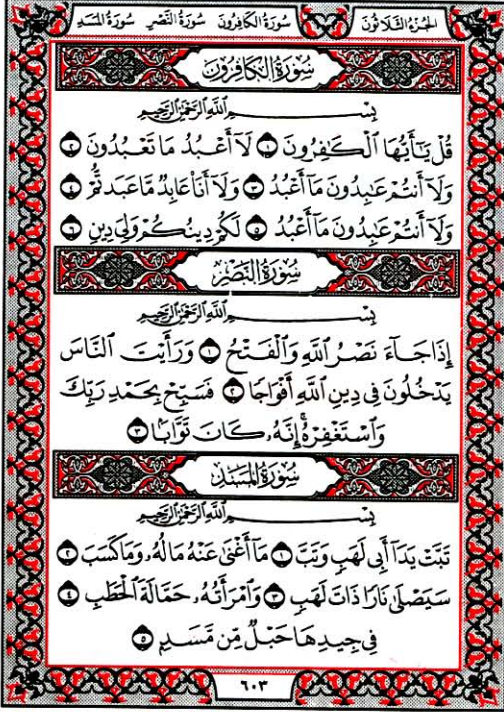 الجزء الثلاثون
سورة الكافرون سورة النصر سورة المسد
سورة الكافرون
بِسْمِ اللَّهِ الرَّحْمَٰنِ الرَّحِيمِ
قُلْ يَـٰٓأَيُّهَا ٱلْكَـٰفِرُونَ ١ لَآ أَعْبُدُ مَا تَعْبُدُونَ ٢
وَلَآ أَنتُمْ عَـٰبِدُونَ مَآ أَعْبُدُ ٣ وَلَآ أَنَا۠ عَابِدٌ مَّا عَبَدتُّمْ ٤
وَلَآ أَنتُمْ عَـٰبِدُونَ مَآ أَعْبُدُ ٥ لَكُمْ دِينُكُمْ وَلِىَ دِينِ ٦
سورة النصر
بِسْمِ اللَّهِ الرَّحْمَٰنِ الرَّحِيمِ
إِذَا جَآءَ نَصْرُ ٱللَّهِ وَٱلْفَتْحُ ١ وَرَأَيْتَ ٱلنَّاسَ
يَدْخُلُونَ فِى دِينِ ٱللَّهِ أَفْوَاجًا ٢ فَسَبِّحْ بِحَمْدِ رَبِّكَ
وَٱسْتَغْفِرْهُ ۚ إِنَّهُۥ كَانَ تَوَّابًۢا ٣
سورة المسد
بِسْمِ اللَّهِ الرَّحْمَٰنِ الرَّحِيمِ
تَبَّتْ يَدَآ أَبِى لَهَبٍ وَتَبَّ ١ مَآ أَغْنَىٰ عَنْهُ مَالُهُۥ وَمَا كَسَبَ ٢
سَيَصْلَىٰ نَارًا ذَاتَ لَهَبٍ ٣ وَٱمْرَأَتُهُۥ حَمَّالَةَ ٱلْحَطَبِ ٤
فِى جِيدِهَا حَبْلٌ مِّن مَّسَدٍۭ ٥
٦٠٣